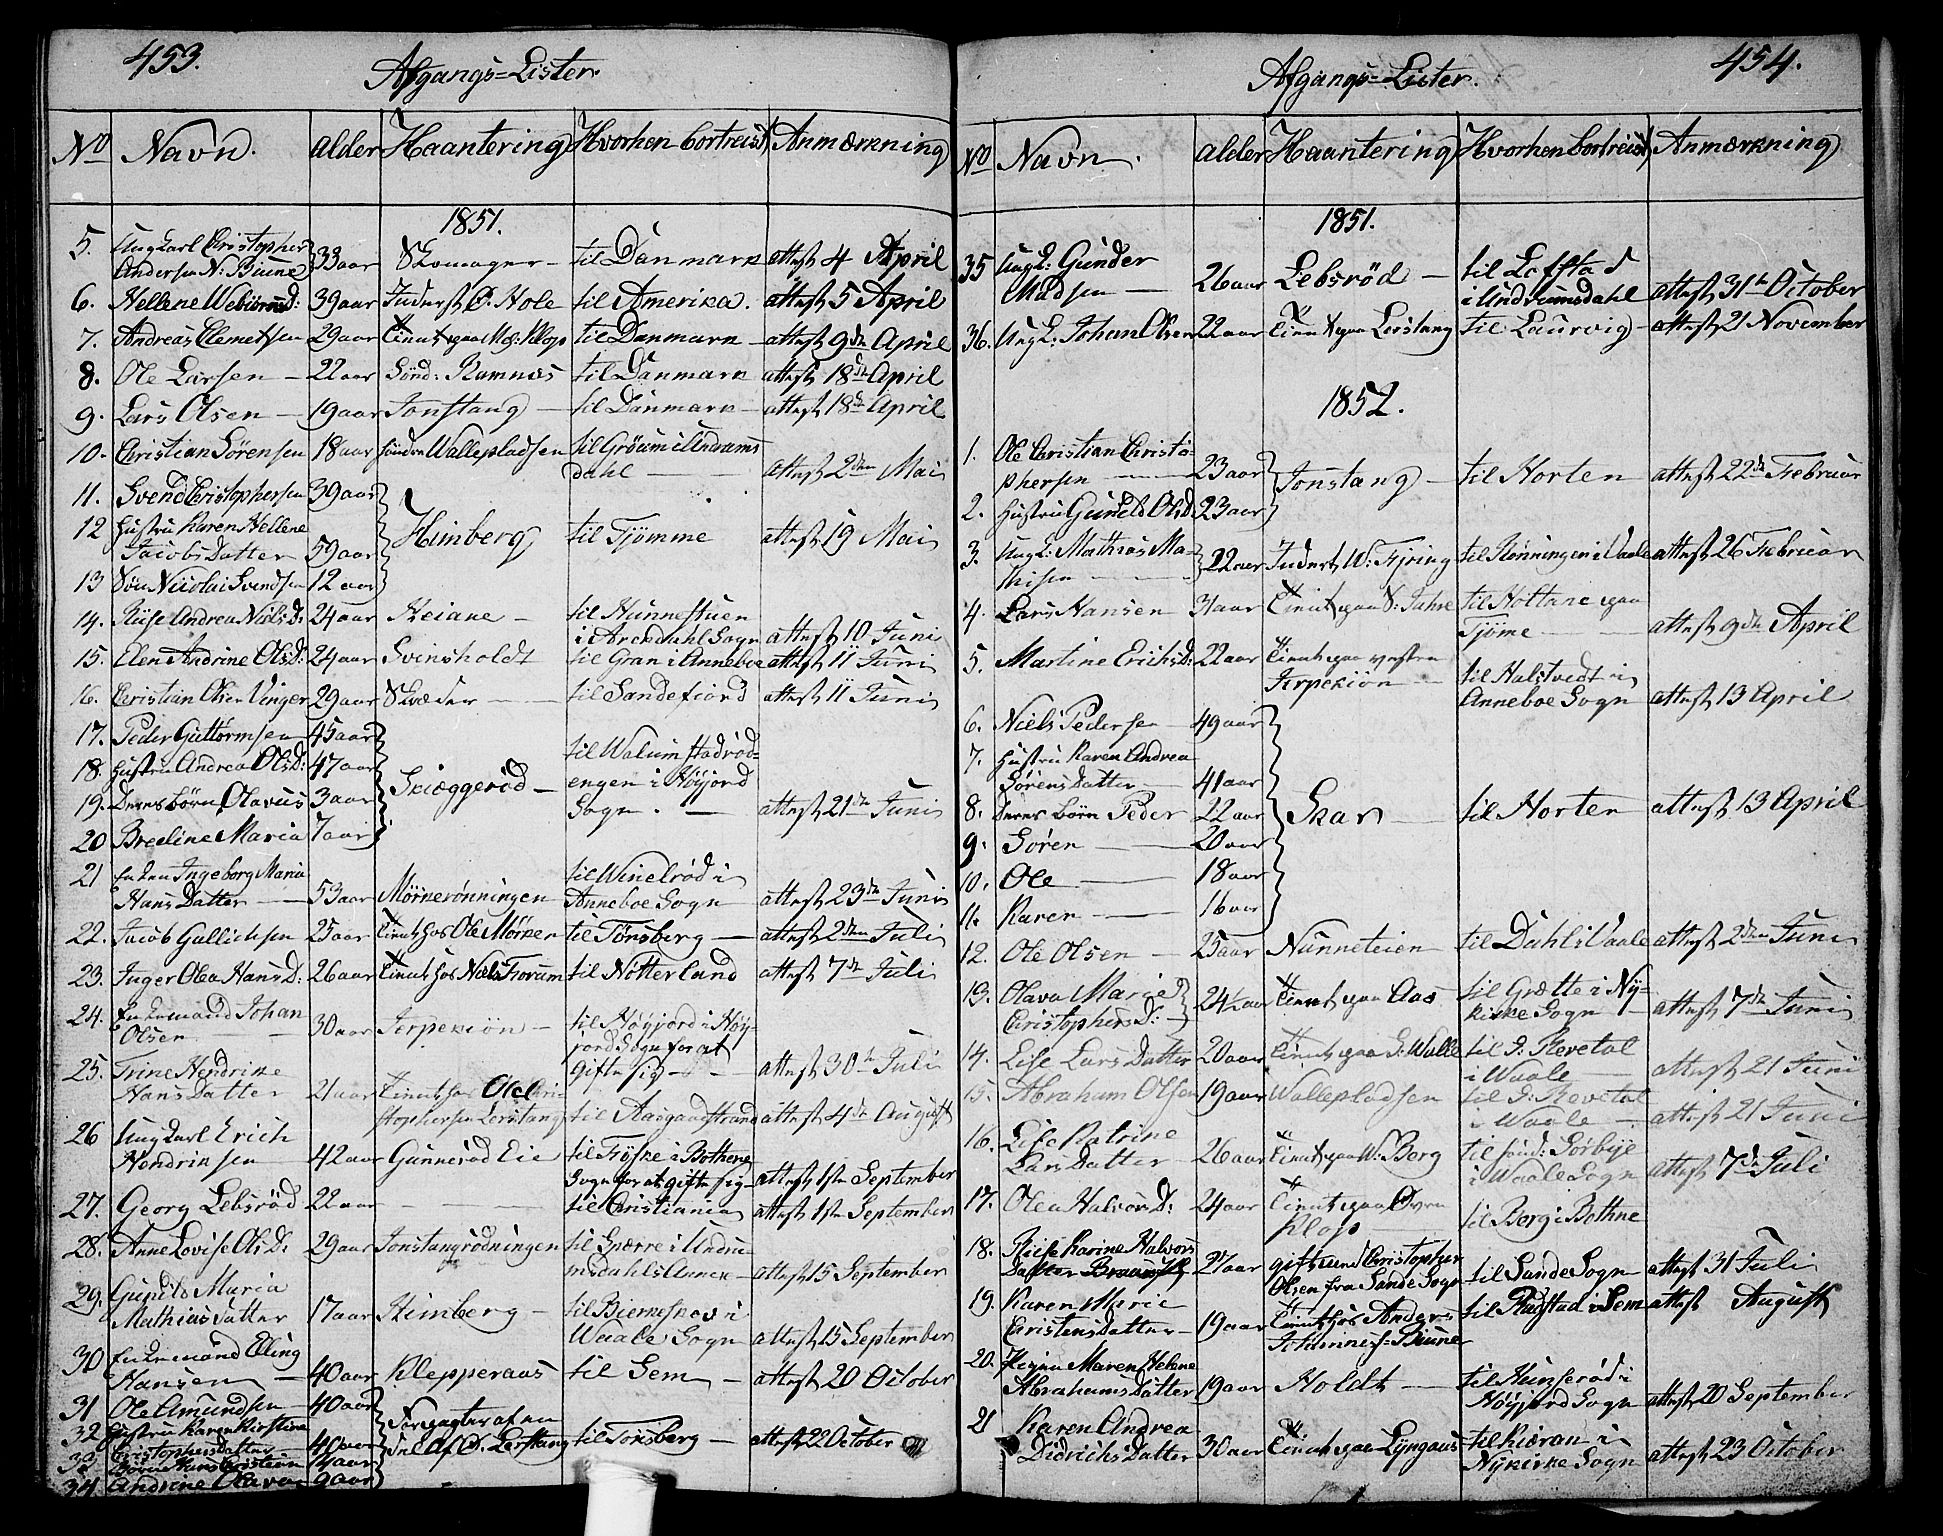 453.
Afgangs=Lister.
No Navn. alder Haantering Hvorhen bortreist Anmærkning
1851.
5. Ungkarl Christopher
Andersen N: Biune 33 aar Skomager til Danmark attest 4 April
6. Hellene Webiörnsd: 39 aar Inderst Hole til Amerika. attest 5 April
7. Andreas Clemetsen 29 aar Tient paa Klop til Danmark attest 9de April
8. Ole Larsen 22 aar Sönd: Ramnæs til Danmark attest 18de April
9. Lars Olsen 19 aar Jonstang til Danmark attest 18de April
10. Christian Sörensen 18 aar söndre Wallepladsen til Gröum i Undrums
dahl attest 2den Mai
11. Svend Christophersen 39 aar
12 Hustru Karen Hellene
Jacobs Datter 59 aar Himberg til Tjömme attest 19 Mai
13 Sön Nicolai Svendsen 12 aar
14. Andrea Niels D: 24 aar Keiane til Hunnestuen
i Arendahl Sogn attest 10 Juni
15. Elen Andrine Olsd: 24 aar Svinsholdt til Gran i Anneboe attest 11 Juni
16. Christian Olsen Vinger 29 aar Skræder til Sandefiord attest 11 Juni
17. Peder Guttormsen 45 aar
18. Hustru Andrea Olsd: 47 aar til Walumstadröd-
19. Deres börn Olavus 3 aar Skiæggeröd engen i Höyjord
20 Bredine Maria 7 aar Sogn. attest 21de Juni
21 Enken Ingeborg Maria
Hans Datter 53 aar Mörkerönningen til Winelröd i
Anneboe Sogn attest 23de Juni
22. Jacob Gullichsen 25 aar Tient hos Ole Mörken til Tönsberg attest 2den Juli
23. Inger Olea Hans D: 26 aar Tient hos Niels Forum til Nötterland attest 7de Juli
24. Enkemand Johan
Olsen 30 aar Jerpekiön til Höyjord i Höy-
jord Sogn for at
gifte sig attest 30te Juli
25. Trine Hendrike
Hans Datter 21 aar Tient hos Ole Chri-
stophersen Lerstang til Aasgaardstrand attest 4de August
26 Ungkarl Erich
Hendriksen 42 aar Gunneröd Eie til Töske i Bothene
Sogn for at gifte sig attest 1ste September
27. Georg Lebsröd 22 aar til Christiania attest 1ste September
28. Anne Lovise Ols D: 29 aar Jonstangrödningen til Sperre i Undru-
msdahls Annex attest 15 September
29. Gunild Maria
Mathias Datter 17 aar Himberg til Bierkeskov i
Waale Sogn attest 15 September
30 Enkemand Elling
Hansen 40 aar Klepperaas til Sem attest 20 October
31 Ole Amundsen 40 aar
32 Hustru Karen Kirstine
Christophers Datter 40 aar Forpagter af en
Del af Lerstang til Tönsberg attest 22 October
33 Börn Hans Christian 14 aar
34 Andrine Olava 9 aar
454.
Afgangs=Lister.
No Navn. alder Haantering Hvorhen bortreist Anmærkning
1851.
35 Ungk: Gunder
Madsen 26 aar Lebsröd til Loffstad
i Undrumsdahl attest 31te October
36. Ungk: Johan Olsen 22 aar Tient paa Lerstang til Laurvig attest 21 November
1852.
1. Ole Christian Christo-
phersen 23 aar Jonstang til Horten attest 22de Februar
2. Hustru Gunild Olsd 23 aar
3. Ungk: Mathias Ma-
thisen 22 aar Inderst W: Fjöring til Rönningen i Vaale attest 26 Februar
4. Lars Hansen 31 aar Tient paa S: Jahre til Holtane paa
Tjöme attest 9de April
5. Martine Erichsd: 22 aar Tient paa vestre
Jerpekiön til Halstvedt i
Anneboe Sogn attest 13 April
6. Niels Pedersen 49 aar
7. Hustru Karen Andrea
Sörens Datter 41 aar
8. Deres börn Peder 22 aar Skar til Horten attest 13 April
9. Sören 20 aar
10. Ole 18 aar
11. Karen 16 aar
12. Ole Olsen 25 aar Nunneteien til Dahl i Vaale attest 2den Juni
13. Olava Marie
Christophers D: 24½ aar Tient paa Aas til Grette i Ny-
kirke Sogn attest 7de Juni
14. Lise Lars Datter 20 aar Tient paa S: Walle til S: Revetal
i Waale attest 21 Juni
15. Abraham Olsen 19 aar Wallepladsen til S: Revetal
i Waale attest 21 Juni
16. Lise Katrine
Lars Datter 26 aar Tient paa W: Berg til sönd: Sörbye
i Waale Sogn attest 7de Juli
17. Olea Halvors D: 24 aar Tient paa Övre
Klop til Berg i Bothne
18. Karine Halvors
Datter 27 aar gift med Christopher
Olsen fra Sande Sogn til Sande Sogn attest 31 Juli
19. Karen Marie
Christens Datter 19 aar Tient hos Anders
Johannes: Biune til Ragstad i Sem attest August
20. Pigen Maren Helene
Abrahams Datter 19 aar Holdt til Hunseröd i
Höyjord Sogn attest 20 September
21 Karen Andrea
Didrichs Datter 30 aar Tient paa Lyngaas til Kiæran i
Nykirke Sogn attest 23 October